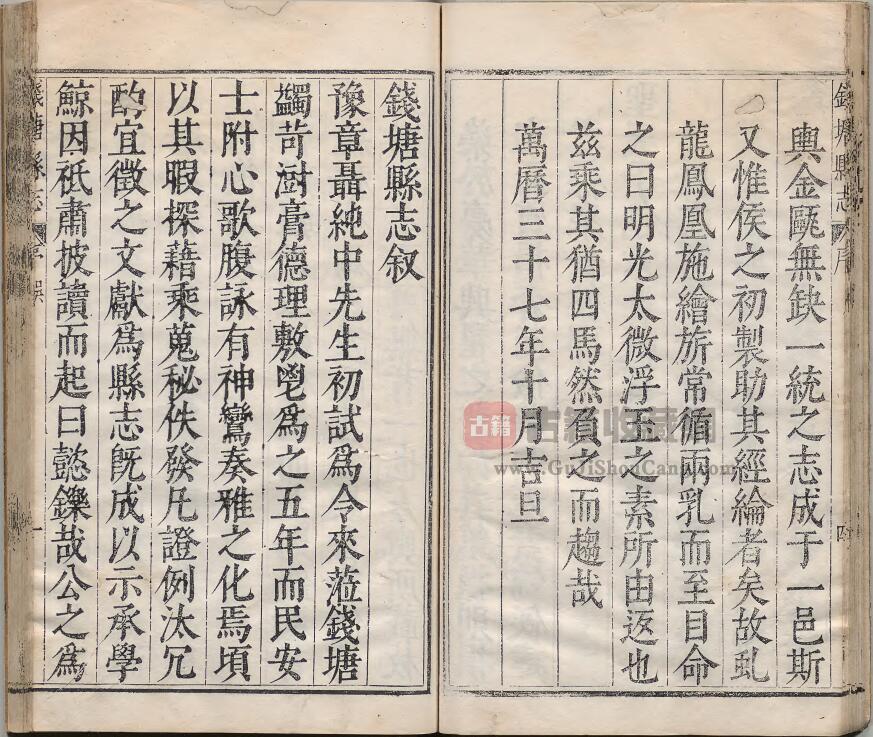 錢塘縣志 序 四
輿金甌無缺一統之志成于一邑斯
又惟侯之初製助其經綸者矣故虬
龍鳳凰施繪旂常循兩乳而至目命
之曰明光太微浮玉之素所由返也
兹乘其猶四馬然負之而趨哉
萬曆三十七年十月吉旦
錢塘縣志叙
豫章聶純中先生初試爲令來蒞錢塘
蠲苛澍膏德理敷鬯爲之五年而民安
士附心歌腹詠有神鸞奏雅之化焉頃
以其暇探藉乘蒐秘佚發凡證例汰冗
酌宜徵之文獻爲縣志旣成以示承學
鯨因祇肅披讀而起曰懿鑠哉公之爲
錢塘縣志 一
古籍
古籍收藏网
www.GuJiShouCang.com